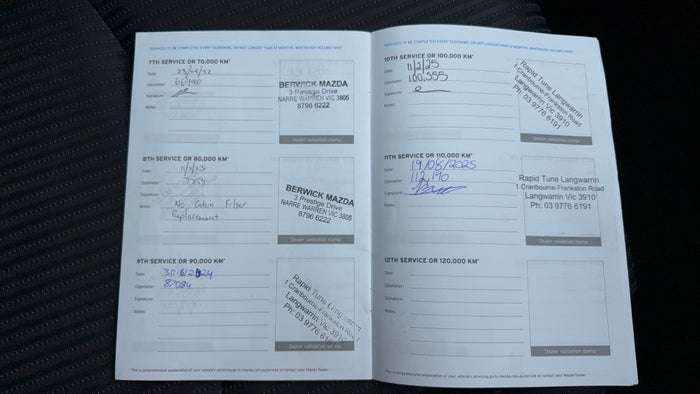 SERVICES TO BE COMPLETED EVERY 10,000KMS, OR NOT LONGER THAN 12 MONTHS, WHICHEVER OCCURS FIRST
7TH SERVICE OR 70,000 KM*
Date:
Odometer: 66940
Signature:
Notes:
BERWICK MAZDA
3 Prestige Drive
NARRE WARREN VIC 3805
8796 6222
Dealer validation stamp
8TH SERVICE OR 80,000 KM*
Date:
Odometer:
Signature:
Notes: No Cabin Filter
Replacement
BERWICK MAZDA
3 Prestige Drive
NARRE WARREN VIC 3805
8796 6222
Dealer validation stamp
9TH SERVICE OR 90,000 KM*
Date:
Odometer: 87084
Signature:
Notes:
Rapid Tune Langwarrin
1 Cranbourne-Frankston Road
Langwarrin Vic 3910
Ph: 03 9776 6191
Dealer validation stamp
*For a comprehensive explanation of your vehicle's servicing go to mazda.com.au/service or contact your Mazda Dealer.
SERVICES TO BE COMPLETED EVERY 10,000KMS, OR NOT LONGER THAN 12 MONTHS, WHICHEVER OCCURS FIRST
10TH SERVICE OR 100,000 KM*
Date: 11/2/25
Odometer: 100555
Signature:
Notes:
Rapid Tune Langwarrin
1 Cranbourne-Frankston Road
Langwarrin Vic 3910
Ph: 03 9776 6191
Dealer validation stamp
11TH SERVICE OR 110,000 KM*
Date: 19/08/2025
Odometer: 112,190
Signature:
Notes:
Rapid Tune Langwarrin
1 Cranbourne-Frankston Road
Langwarrin Vic 3910
Ph: 03 9776 6191
Dealer validation stamp
12TH SERVICE OR 120,000 KM*
Date:
Odometer:
Signature:
Notes:
Dealer validation stamp
*For a comprehensive explanation of your vehicle's servicing go to mazda.com.au/service or contact your Mazda Dealer.